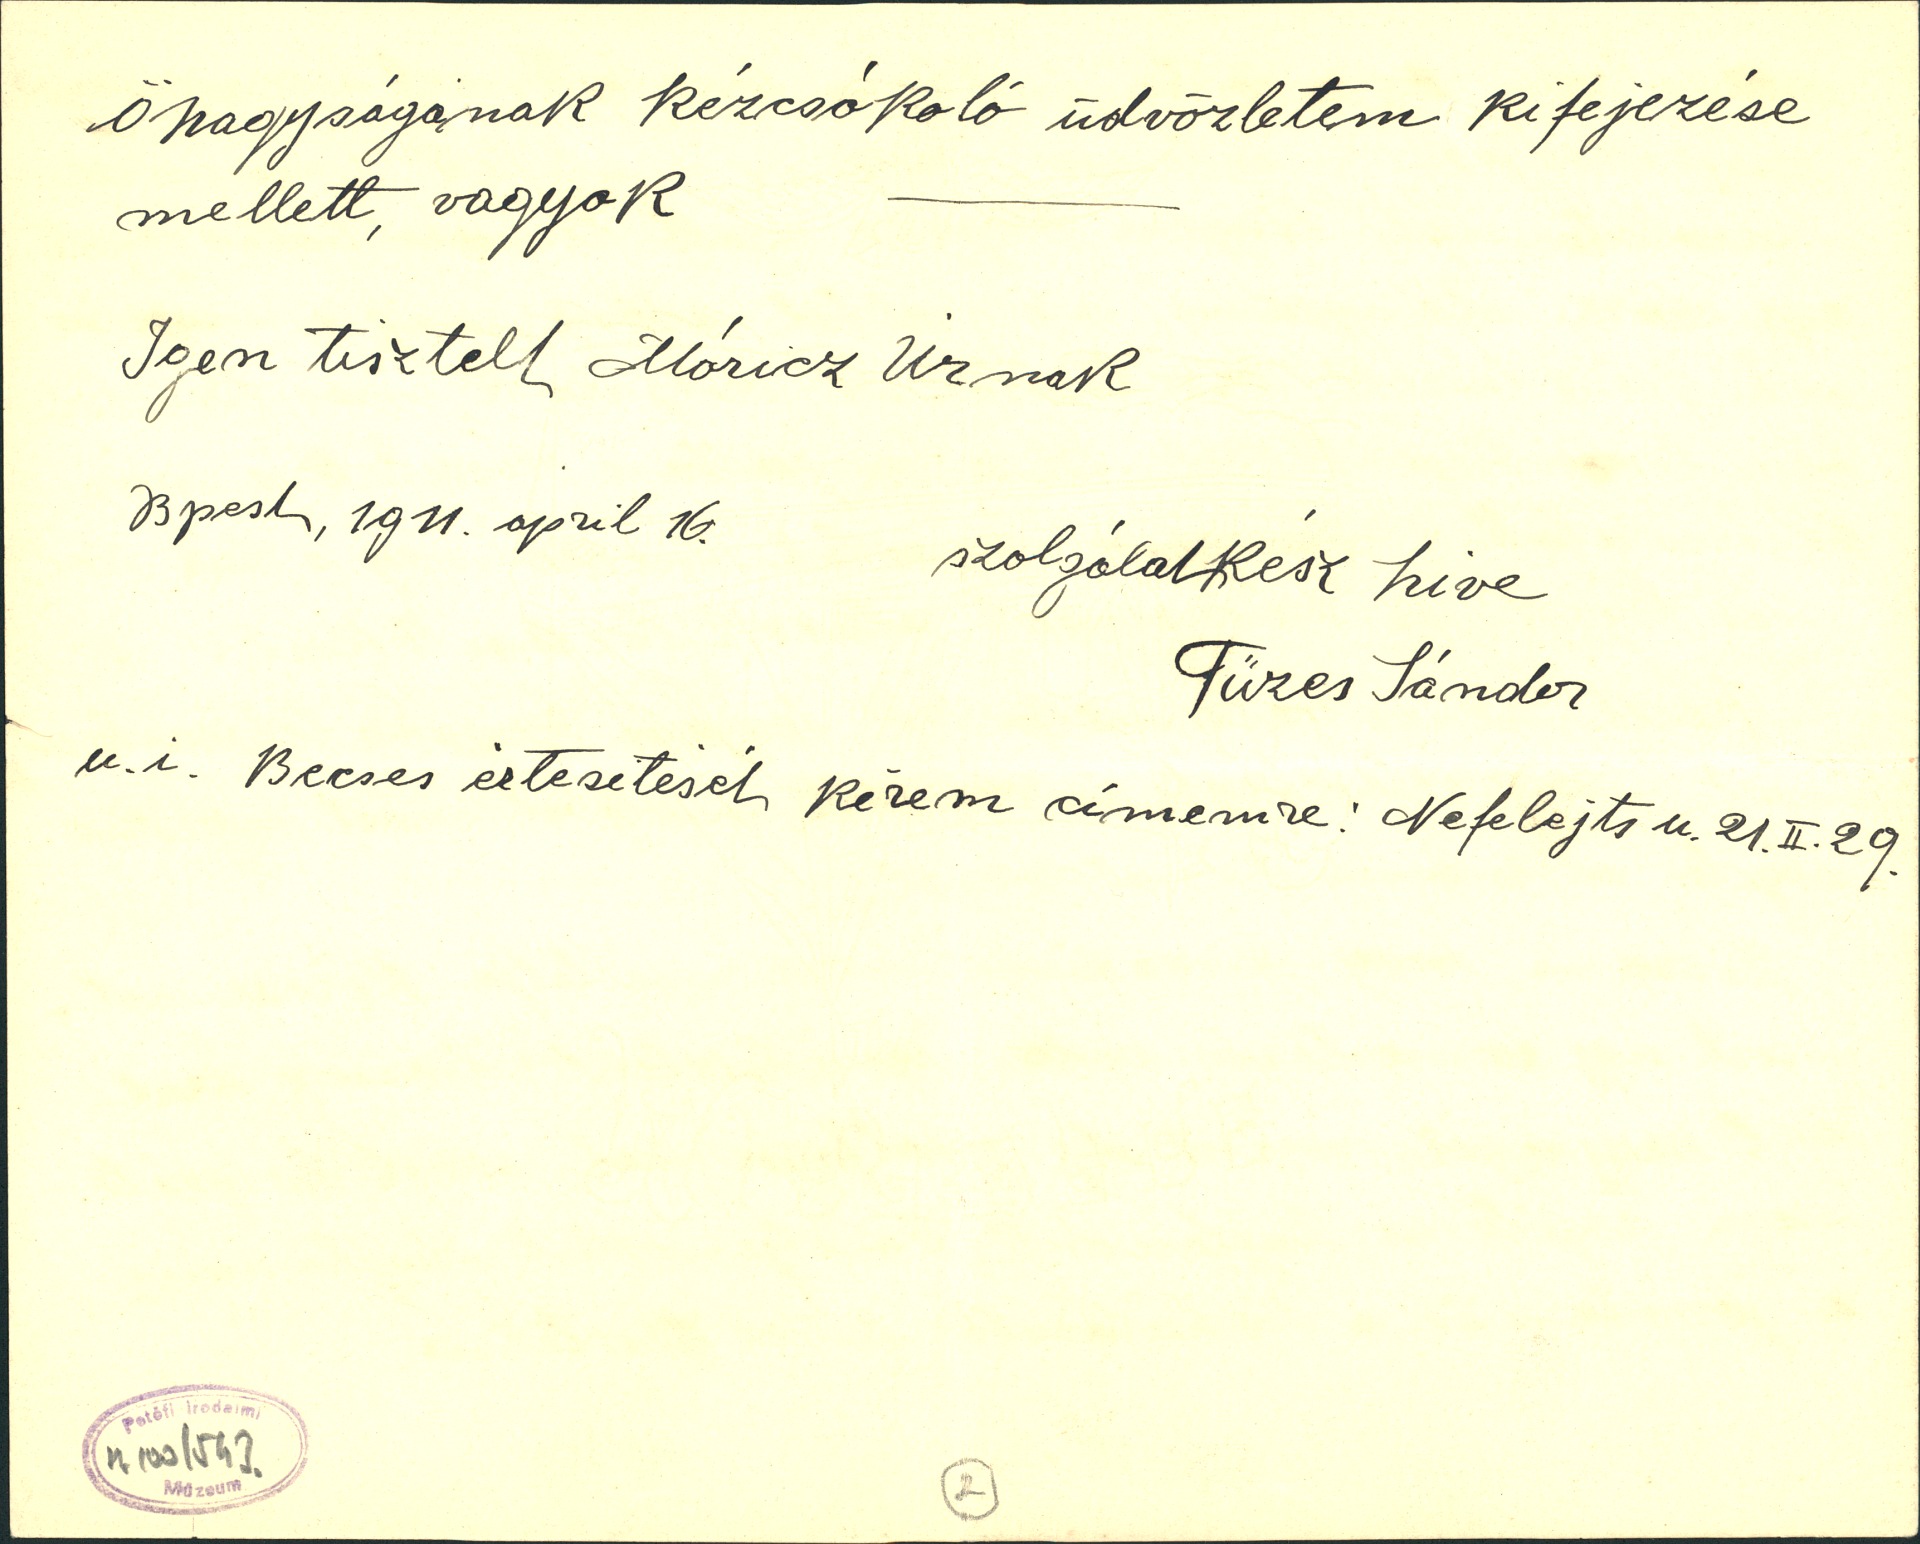 Őnagyságának kézcsókoló üdvözletem kifejezése
mellett, vagyok
Igen tisztelt Móricz Úrnak
Bpest, 1911. april 16.
szolgálatkész hive
Füzes Sándor
u.i. Becses értesitését kérem címemre: Nefelejts u. 21. II. 29.
Petőfi Irodalmi
100/543.
Múzeum
2